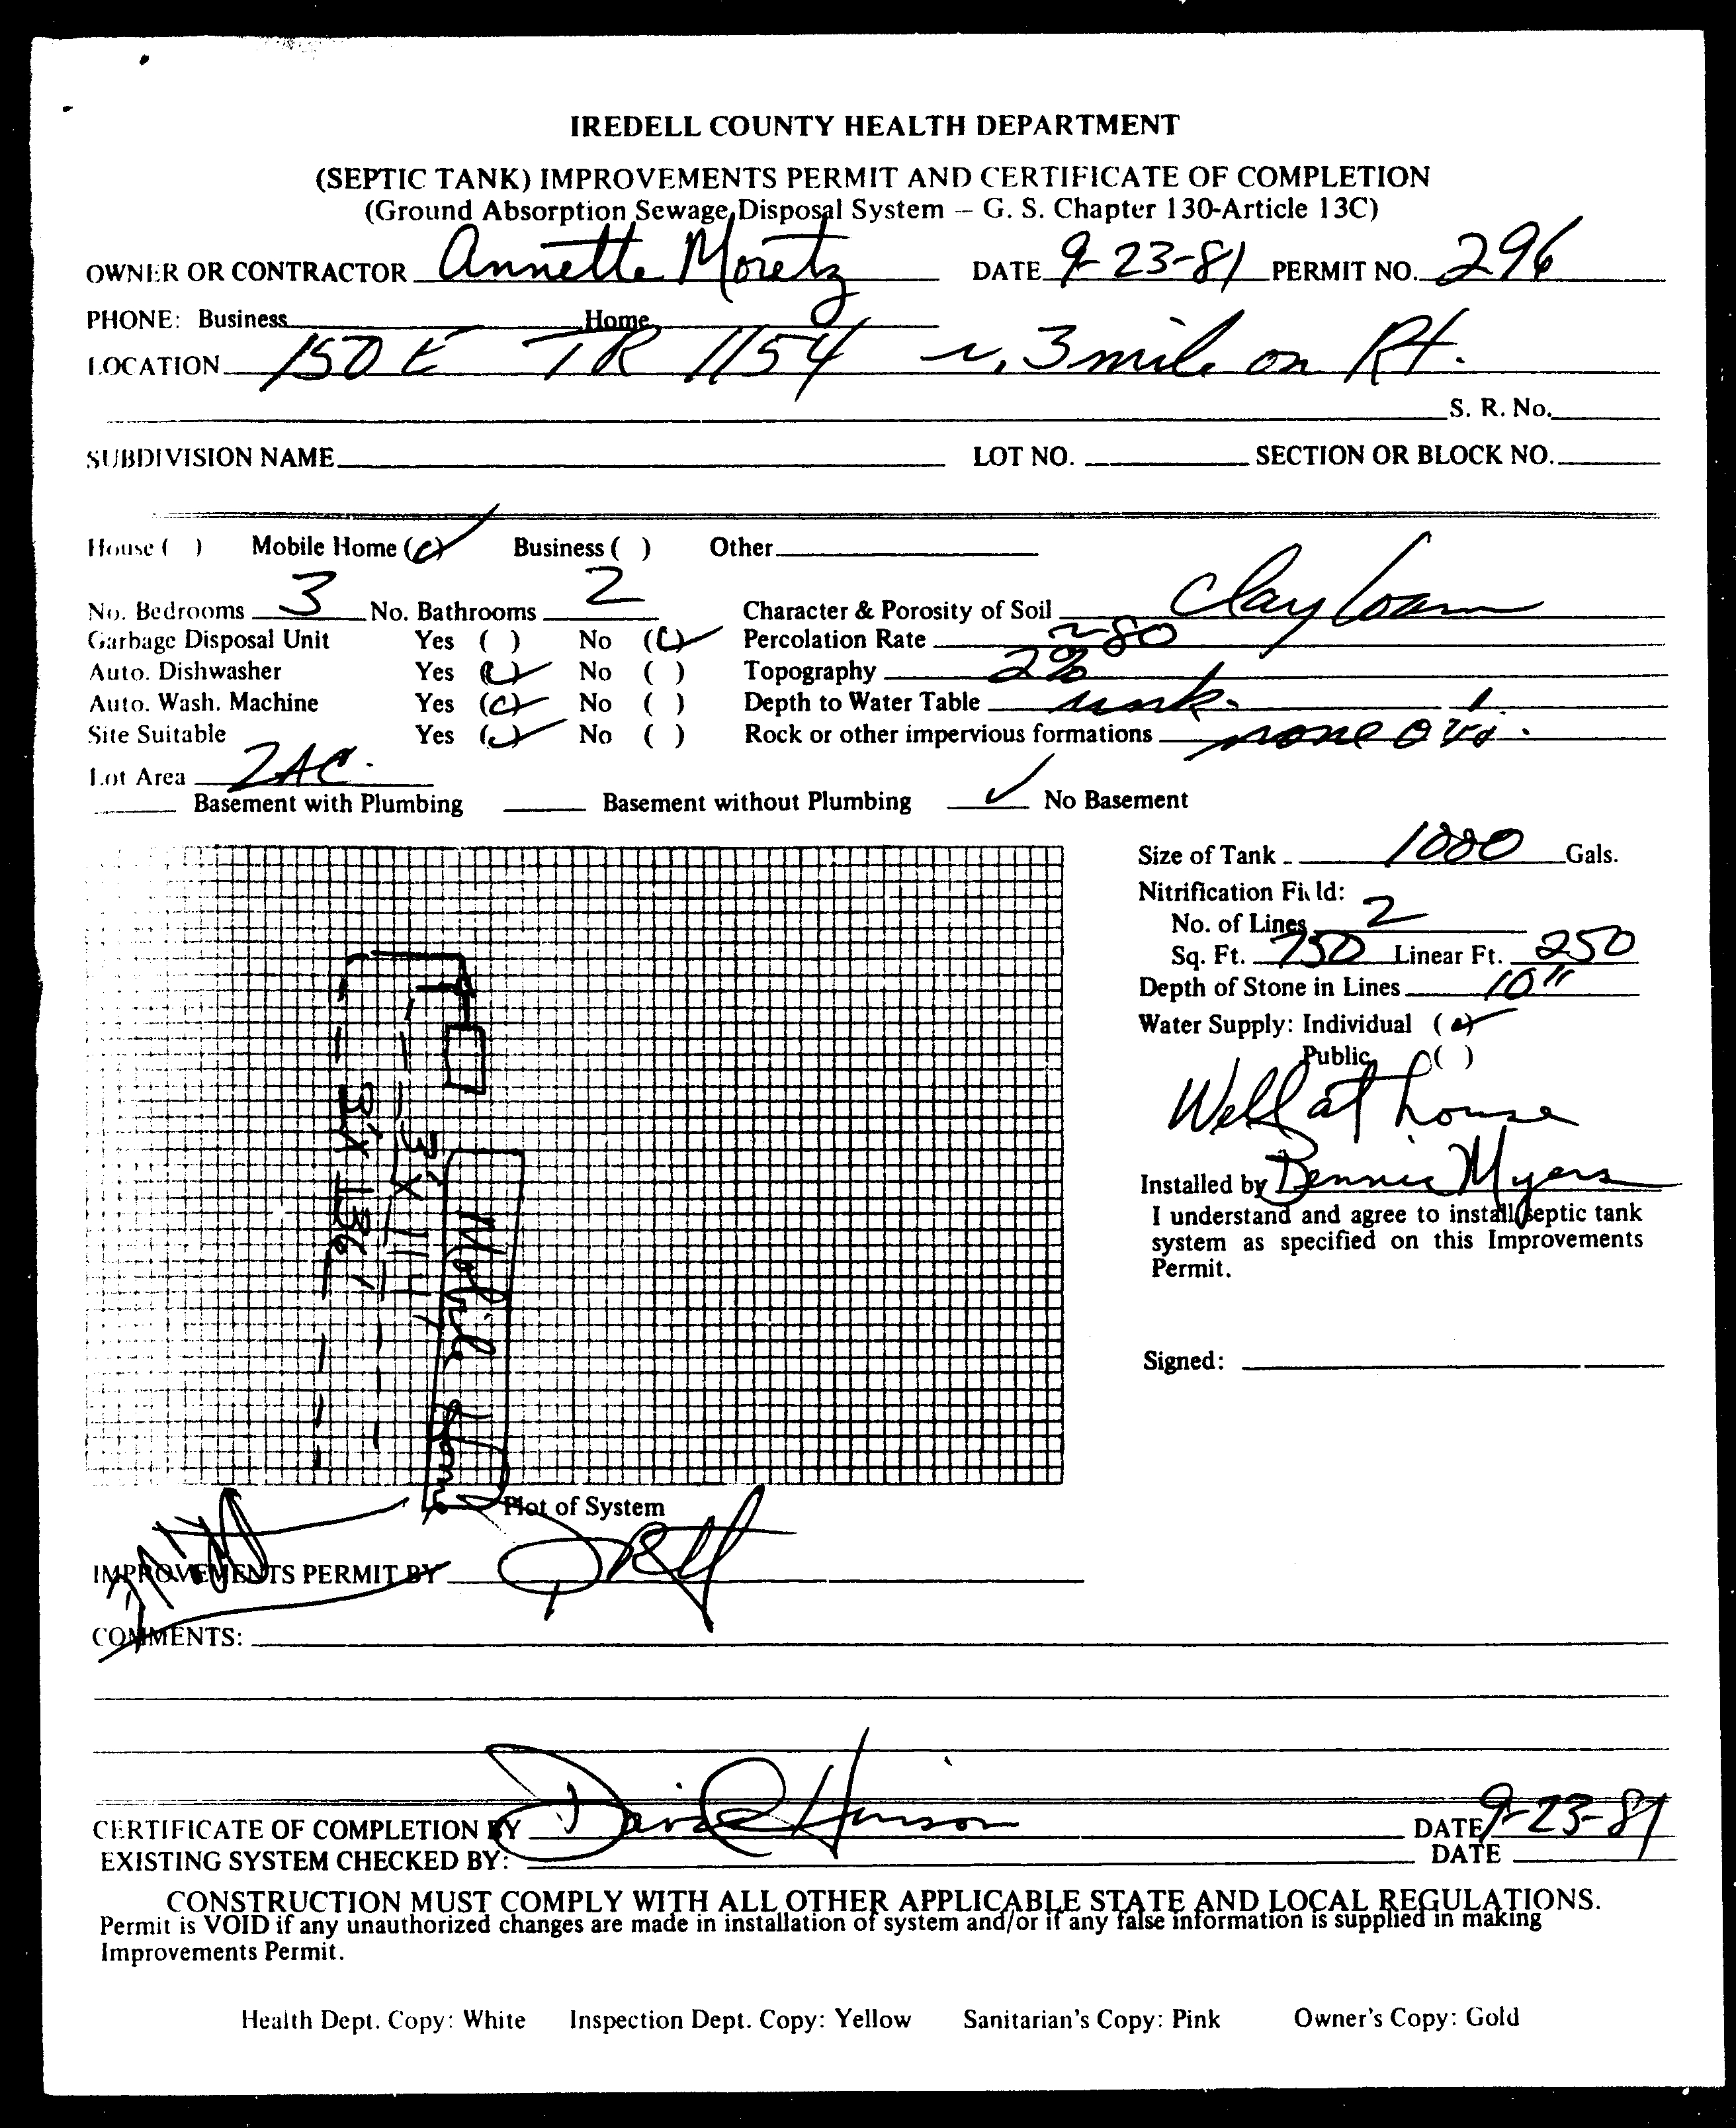 IREDELL COUNTY HEALTH DEPARTMENT
(SEPTIC TANK) IMPROVEMENTS PERMIT AND CERTIFICATE OF COMPLETION
(Ground Absorption Sewage Disposal System — G. S. Chapter 130-Article 13C)
OWNER OR CONTRACTOR Annette Moretz DATE 9-23-81 PERMIT NO. 296
PHONE: Business Home
LOCATION 150 E TR 1154 ~ .3 mile on Rt.
S. R. No.
SUBDIVISION NAME LOT NO. SECTION OR BLOCK NO.
House ( ) Mobile Home (✓) Business ( ) Other
No. Bedrooms 3 No. Bathrooms 2 Character & Porosity of Soil Clay loam
Garbage Disposal Unit Yes ( ) No (✓) Percolation Rate ~80
Auto. Dishwasher Yes (✓) No ( ) Topography 2%
Auto. Wash. Machine Yes (✓) No ( ) Depth to Water Table unk.
Site Suitable Yes (✓) No ( ) Rock or other impervious formations none
Lot Area 2 AC.
Basement with Plumbing Basement without Plumbing ✓ No Basement
Size of Tank 1000 Gals.
Nitrification Field:
No. of Lines 2
Sq. Ft. 750 Linear Ft. 250
Depth of Stone in Lines 10"
Water Supply: Individual (✓)
Public ( )
Well at house
Installed by Bennie Myers
I understand and agree to install septic tank
system as specified on this Improvements
Permit.
Signed:
3' X 136'
3' X 114'
Mobile Home
Plot of System
IMPROVEMENTS PERMIT BY
COMMENTS:
CERTIFICATE OF COMPLETION BY David Hinson DATE 9-23-81
EXISTING SYSTEM CHECKED BY: DATE
CONSTRUCTION MUST COMPLY WITH ALL OTHER APPLICABLE STATE AND LOCAL REGULATIONS.
Permit is VOID if any unauthorized changes are made in installation of system and/or if any false information is supplied in making
Improvements Permit.
Health Dept. Copy: White Inspection Dept. Copy: Yellow Sanitarian's Copy: Pink Owner's Copy: Gold